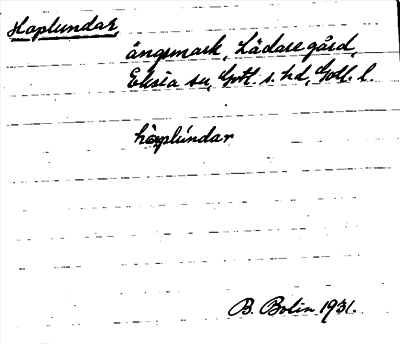 Haplundar,
ängsmark, Lädare gård,
Eksta sn, Gotl. s. hd, Gotl. l.
håplúndar
B. Bolin 1931.